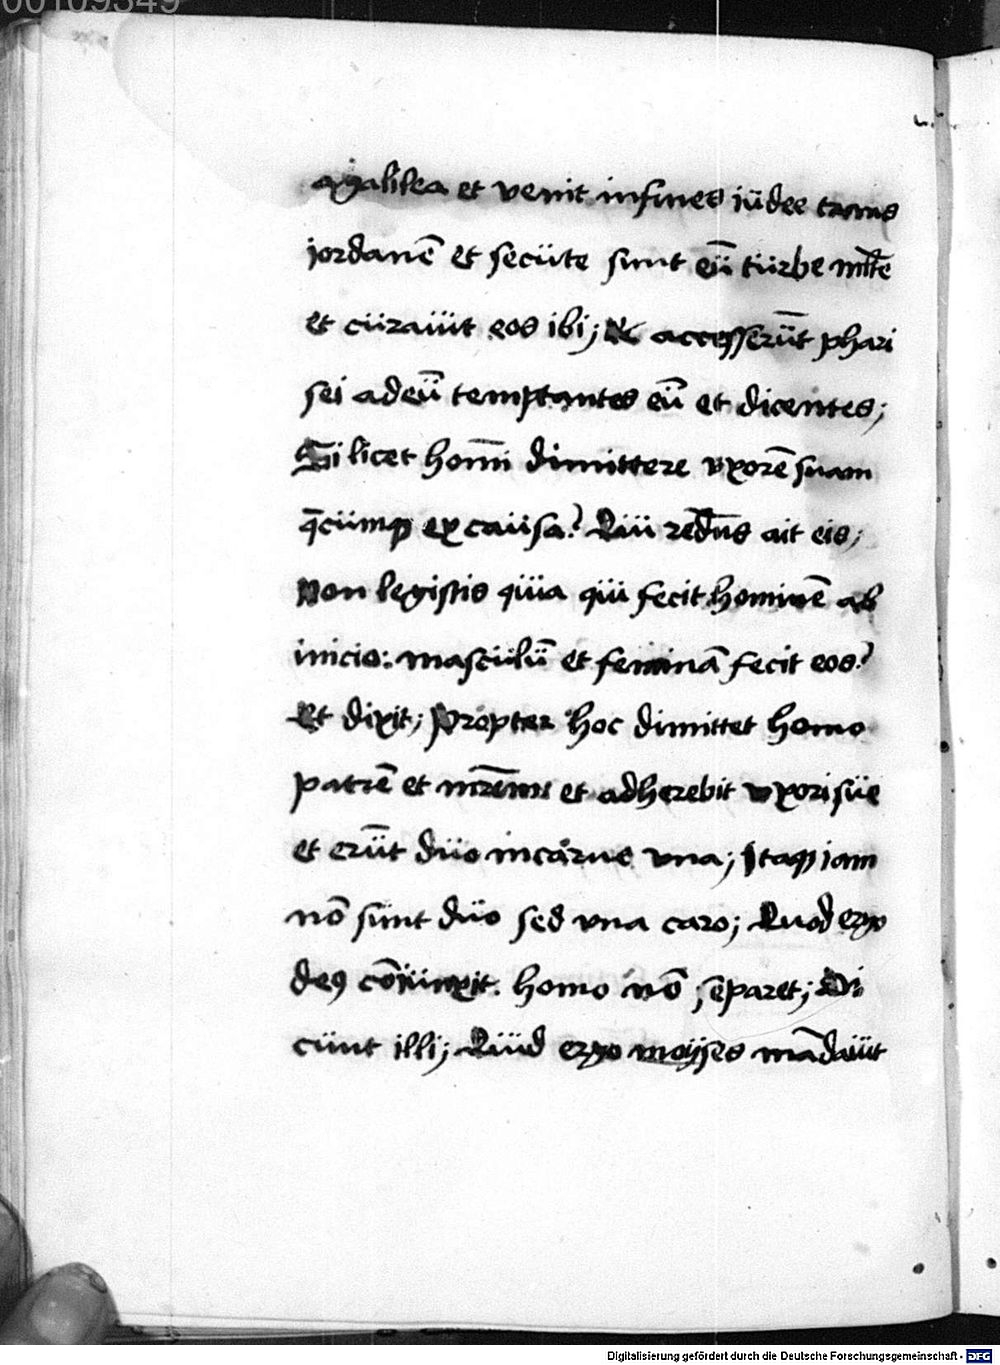 00109349
agalilea et venit infines iüdee trans
jordanē et secüte sunt eū türbe mlte
et cüraüit eos ibi; Et accesserūt phari
sei ad eū temptantes eū et dicentes;
Si licet homī dimittere vxorē suam
q̄cümqȝ ex caüsa? Qüi redn̄s ait eis;
Non legistis qüia qüi fecit hominē ab
inicio: mascülū et feminā fecit eos?
Et dixit; Propter hoc dimittet homo
patrē et mrēm et adherebit vxori süe
et erūt düo in carne vna; Itaqȝ iam
nō sünt düo sed vna caro; Quod ergo
deꝯ cōiünxit. homo nō separet; Di
cünt illi; Qüid ergo moyses mādaüit
Digitalisierung gefördert durch die Deutsche Forschungsgemeinschaft - DFG